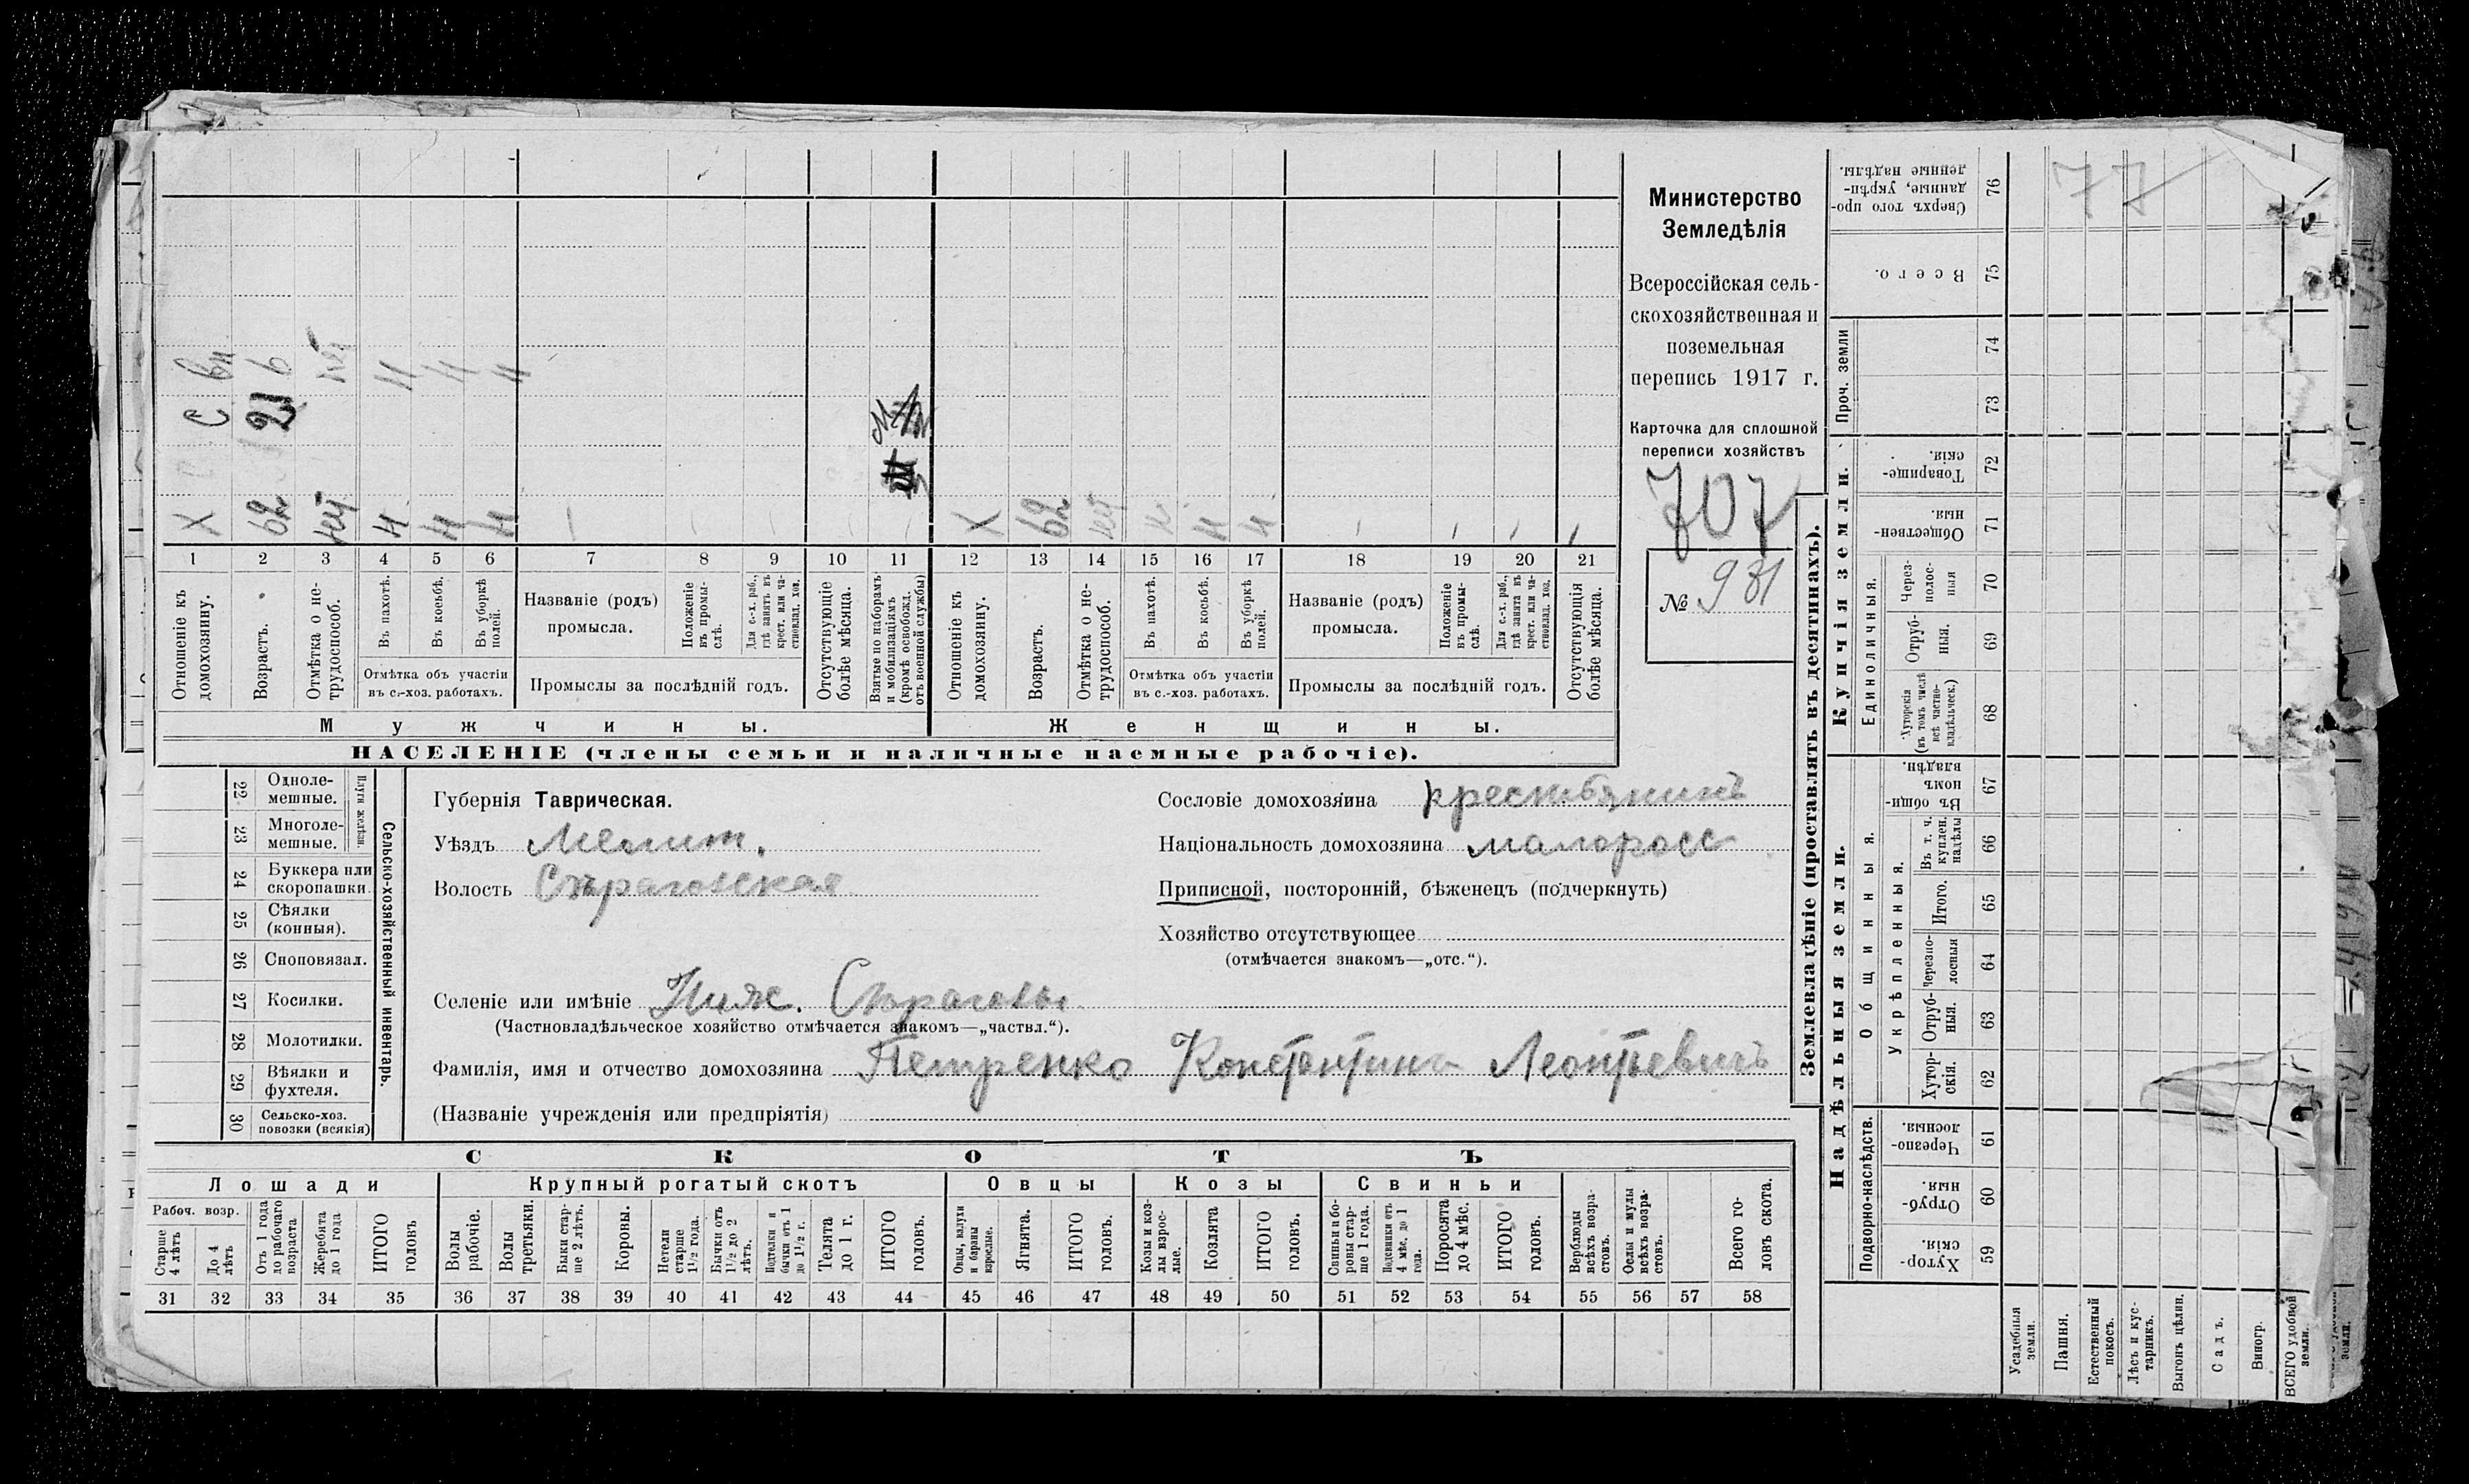 Министерство
Земледѣлія
Всероссійская сель-
скохозяйственная и
поземельная
перепись 1917 г.
Карточка для сплошной
переписи хозяйствъ
707
№ 931
X С вн
62 21 6
X
62
1 2 3 4 5 6 7 8 9 10 11 12 13 14 15 16 17 18 19 20 21
Отношеніе къ домохозяину.
Возрастъ.
Отмѣтка о не-трудоспособ.
Въ пахотѣ.
Въ косьбѣ.
Въ уборкѣ полей.
Отмѣтка объ участіи въ с.-хоз. работахъ.
Названіе (родъ) промысла.
Положеніе въ промы-слѣ.
Для с.-х. раб., гдѣ занятъ въ крест. или ча-стновлад. хоз.
Промыслы за послѣдній годъ.
Отсутствующіе болѣе мѣсяца.
Взятые по наборамъ и мобилизаціямъ (кромѣ освобожд. отъ военной службы)
Отношеніе къ домохозяину.
Возрастъ.
Отмѣтка о не-трудоспособ.
Въ пахотѣ.
Въ косьбѣ.
Въ уборкѣ полей.
Отмѣтка объ участіи въ с.-хоз. работахъ.
Названіе (родъ) промысла.
Положеніе въ промы-слѣ.
Для с.-х. раб., гдѣ занята въ крест. или ча-стновлад. хоз.
Промыслы за послѣдній годъ.
Отсутствующія болѣе мѣсяца.
Мужчины. Женщины.
НАСЕЛЕНІЕ (члены семьи и наличные наемные рабочіе).
22 Одноле-мешные.
23 Многоле-мешные.
Плуги желѣзн.
24 Буккера или скоропашки.
25 Сѣялки (конныя).
26 Сноповязал.
27 Косилки.
28 Молотилки.
29 Вѣялки и фухтеля.
30 Сельско-хоз. повозки (всякія)
Сельско-хозяйственный инвентарь.
Губернія Таврическая.
Уѣздъ Мелит.
Волость Сѣрагозская
Сословіе домохозяина крестьянинъ
Національность домохозяина малоросс
Приписной, посторонній, бѣженецъ (подчеркнуть)
Хозяйство отсутствующее
(отмѣчается знакомъ—„отс.“).
Селеніе или имѣніе Ниж. Сѣрагозы
(Частновладѣльческое хозяйство отмѣчается знакомъ—„частвл.“).
Фамилія, имя и отчество домохозяина Петренко Константинъ Леонтьевичъ
(Названіе учрежденія или предпріятія)
СКОТЪ
Лошади Крупный рогатый скотъ Овцы Козы Свиньи
Рабоч. возр.
Старше 4 лѣтъ
До 4 лѣтъ
Отъ 1 года до рабочаго возраста
Жеребята до 1 года
ИТОГО головъ
Волы рабочіе.
Волы третьяки.
Быки стар-ше 2 лѣтъ.
Коровы.
Нетели старше 1½ года.
Бычки отъ 1½ до 2 лѣтъ.
Подтелки и бычки отъ 1 до 1½ г.
Телята до 1 г.
ИТОГО головъ.
Овцы, валухи и бараны взрослые.
Ягнята.
ИТОГО головъ.
Козы и коз-лы взрос-лые.
Козлята
ИТОГО головъ.
Свиньи и бо-ровы стар-ше 1 года.
Подсвинки отъ 4 мѣс. до 1 года.
Поросята до 4 мѣс.
ИТОГО головъ.
Верблюды всѣхъ возра-стовъ.
Ослы и мулы всѣхъ возра-стовъ.
Всего го-ловъ скота.
31 32 33 34 35 36 37 38 39 40 41 42 43 44 45 46 47 48 49 50 51 52 53 54 55 56 57 58
Землевладѣніе (проставлять въ десятинахъ).
Надѣльныя земли. Купчія земли.
Проч. земли
Подворно-наслѣдств.
Общинныя.
Укрѣпленныя.
Единоличныя.
Сверхъ того про-данные, укрѣп-ленные надѣлы. 76
Всего. 75
74
73
Товарище-скія. 72
Обществен-ныя. 71
Через-полос-ныя 70
Отруб-ныя. 69
Хуторскія (въ томъ числѣ всѣ частно-владѣльческ.) 68
Въ общин-номъ владѣн. 67
Въ т. ч. куплен. надѣлы 66
Итого. 65
Черезпо-лосныя 64
Отруб-ныя. 63
Хутор-скія. 62
Черезпо-лосныя. 61
Отруб-ныя. 60
Хутор-скія. 59
77
Усадебныя земли.
Пашня.
Естественный покосъ.
Лѣсъ и кус-тарникъ.
Выгонъ цѣлин.
Садъ.
Виногр.
ВСЕГО удобной земли.